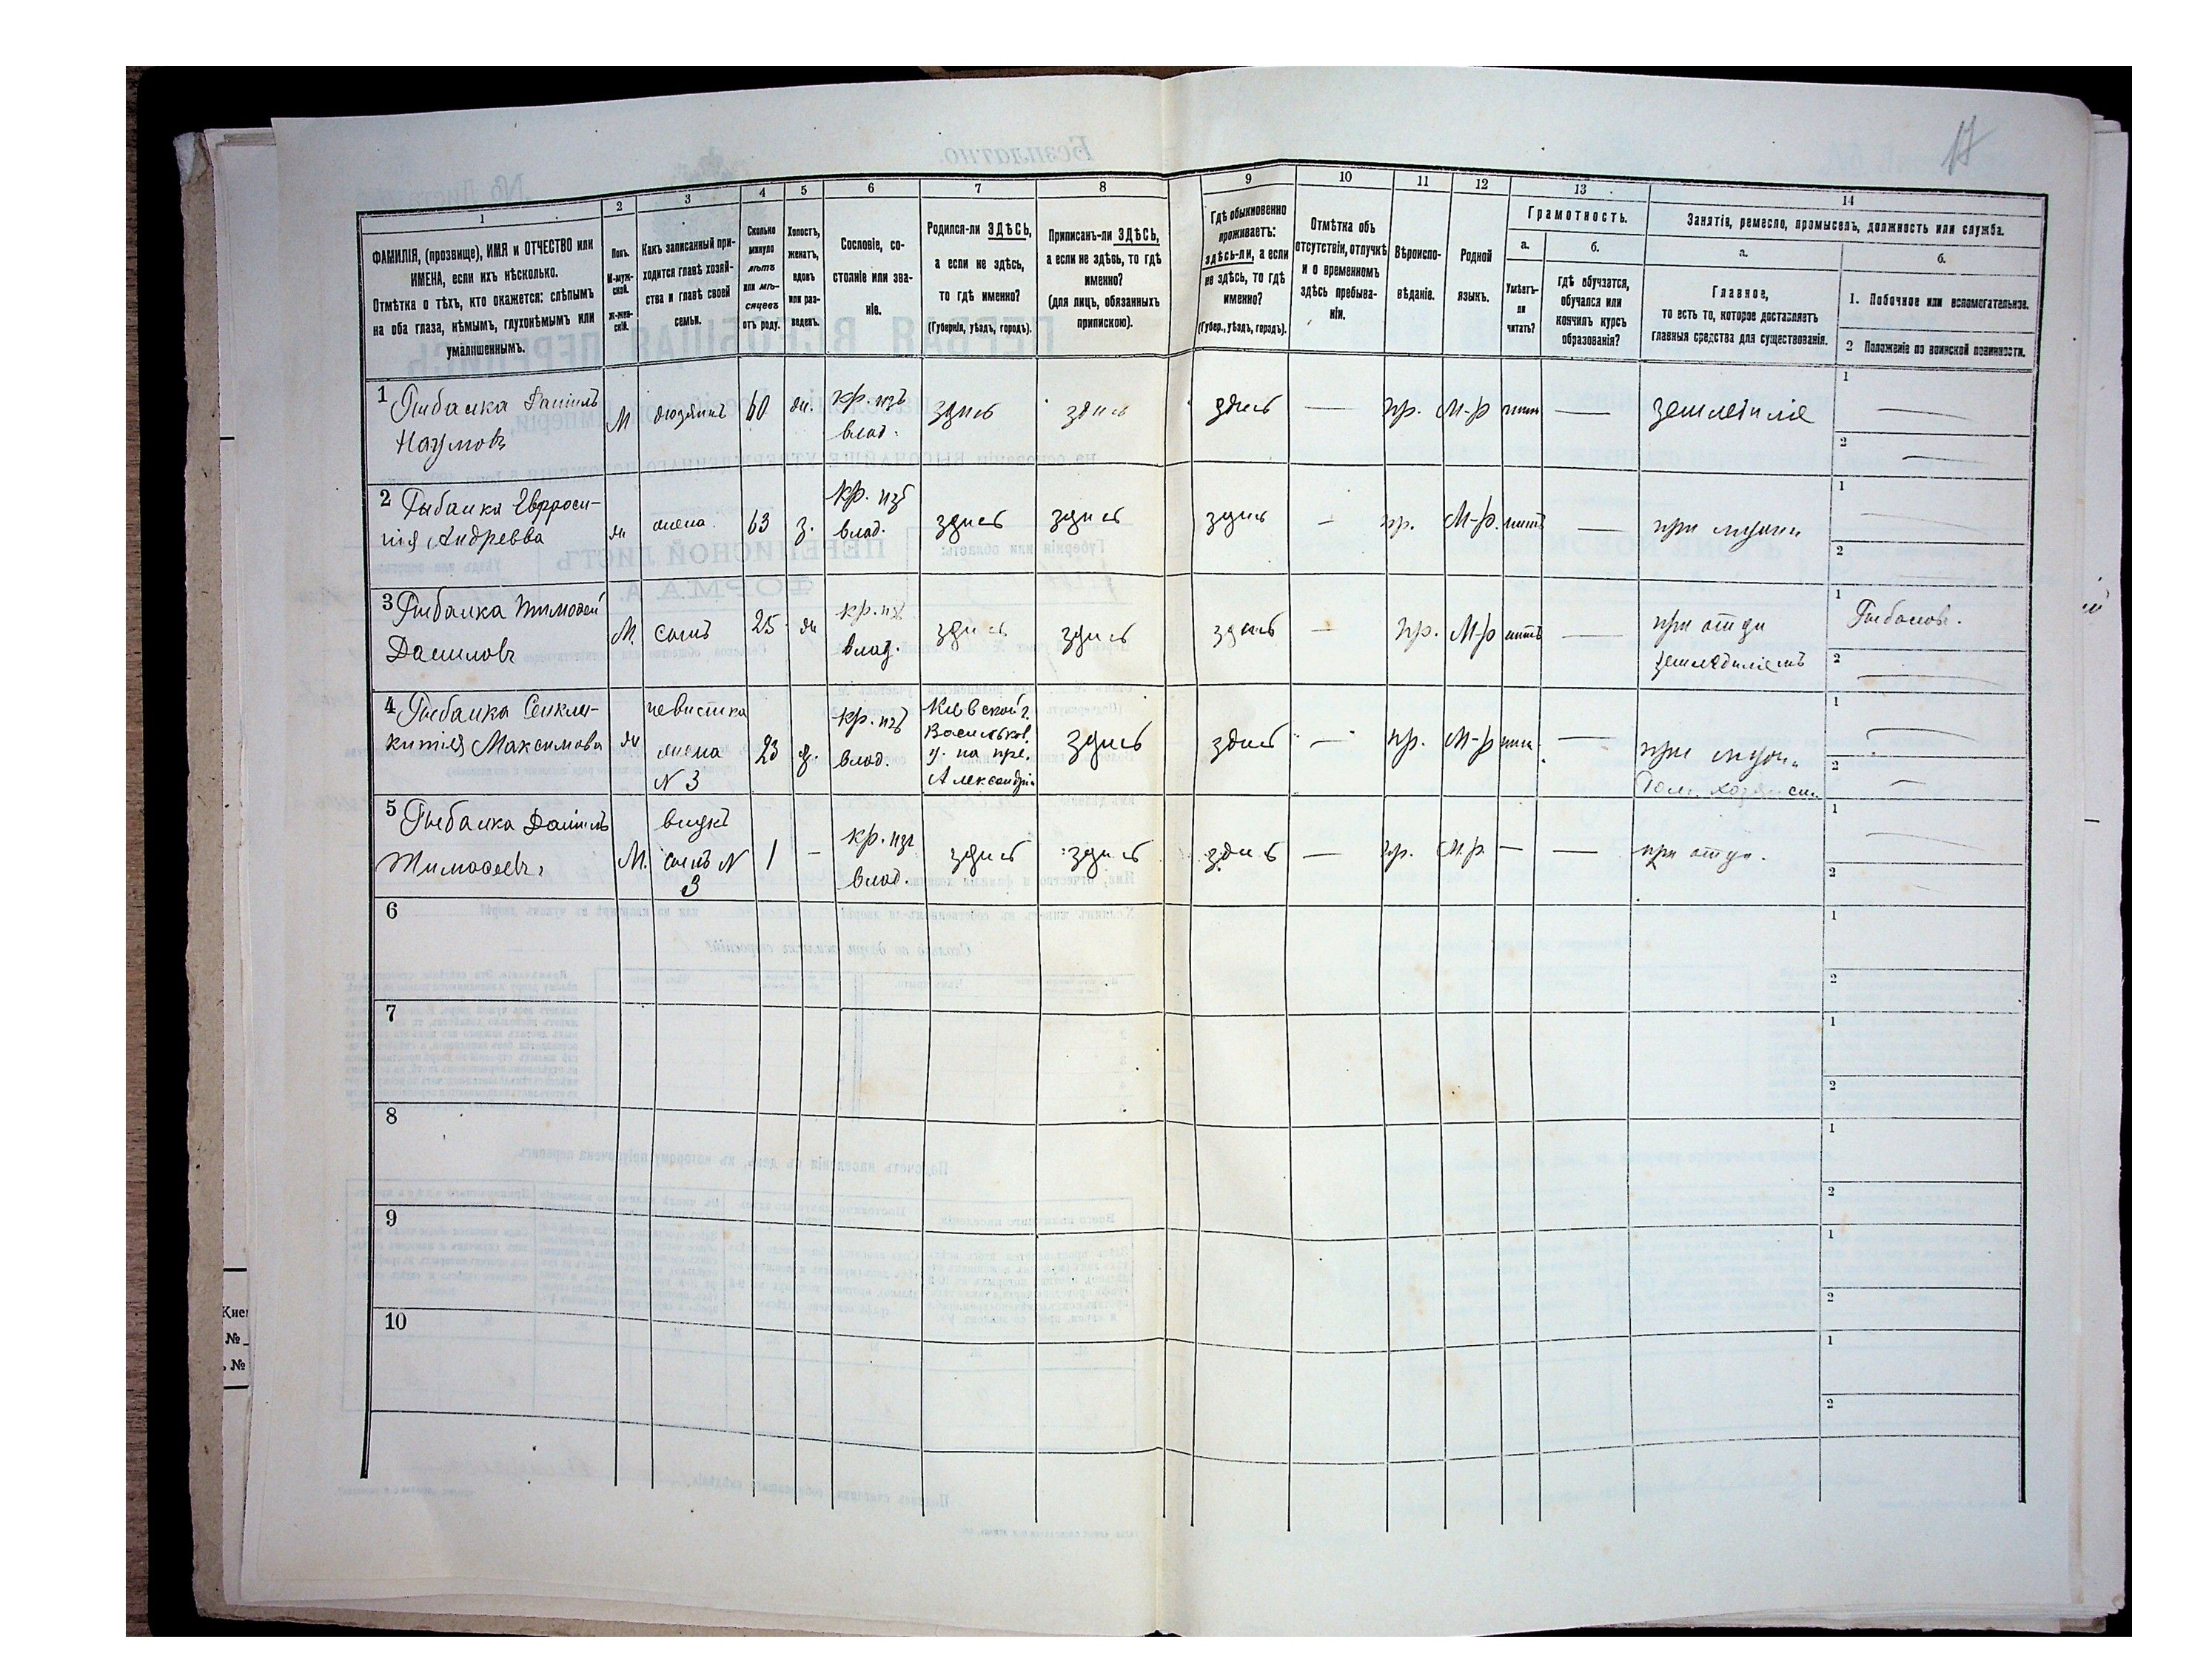 17
1
2
3
4
5
6
7
8
9
10
11
12
13
14
ФАМИЛІЯ, (прозвище), ИМЯ и ОТЧЕСТВО или
ИМЕНА, если ихъ нѣсколько.
Отмѣтка о тѣхъ, кто окажется: слѣпымъ
на оба глаза, нѣмымъ, глухонѣмымъ или
умалишеннымъ.
Полъ.
М-муж-
ской.
ж-жен-
скій.
Какъ записанный при-
ходится главѣ хозяй-
ства и главѣ своей
семьи.
Сколько
минуло
лѣтъ
или мѣ-
сяцевъ
отъ роду.
Холостъ,
женатъ,
вдовъ
или раз-
веденъ.
Сословіе, со-
стояніе или зва-
ніе.
Родился-ли ЗДѢСЬ,
а если не здѣсь,
то гдѣ именно?
(Губернія, уѣздъ, городъ).
Приписанъ-ли ЗДѢСЬ,
а если не здѣсь, то гдѣ
именно?
(для лицъ, обязанныхъ
припискою).
Гдѣ обыкновенно
проживаетъ:
здѣсь-ли, а если
не здѣсь, то гдѣ
именно?
(Губер., уѣздъ, городъ).
Отмѣтка объ
отсутствіи, отлучкѣ
и о временномъ
здѣсь пребыва-
ніи.
Вѣроиспо-
вѣданіе.
Родной
языкъ.
Грамотность.
а.
Умѣетъ-
ли
читать?
б.
гдѣ обучается,
обучался или
кончилъ курсъ
образованія?
Занятія, ремесло, промыселъ, должность или служба.
а.
Главное,
то есть то, которое доставляетъ
главныя средства для существованія.
б.
1. Побочное или вспомогательное.
2 Положеніе по воинской повинности.
1 Рыбалка Даніилъ
Наумовъ
М хозяинъ 60 жн. кр. изъ
влад.
здись здись здись — пр. М-р нитъ — земледиліе
1 —
2 —
2 Рыбалка Евфроси-
нія Андреева
жн жена 63 з. кр. изъ
влад.
здись здись здись — пр. М-р. нитъ — при мужи
1
2
3 Рыбалка Тимофей
Даниловъ
М. сынъ 25 жн кр. изъ
влад.
здись здись здись — пр. М-р нитъ — при отци
земледиліемъ
1 Рыболов.
2
4 Рыбалка Секли-
китія Максимова
жн невистка
жена
N 3
23 з. кр. изъ
влад.
Кіевской г.
Васильков.
у.
Александрія
здись здись — пр. М-р нитъ — при мужи
1
2
5 Рыбалка Даніилъ
Тимофеевъ
М. внукъ
сынъ N
3
1 — кр. изъ
влад.
здись здись здись — пр. М-р. — — при отци.
1
2
6
1
2
7
1
2
8
1
2
9
1
2
10
1
2